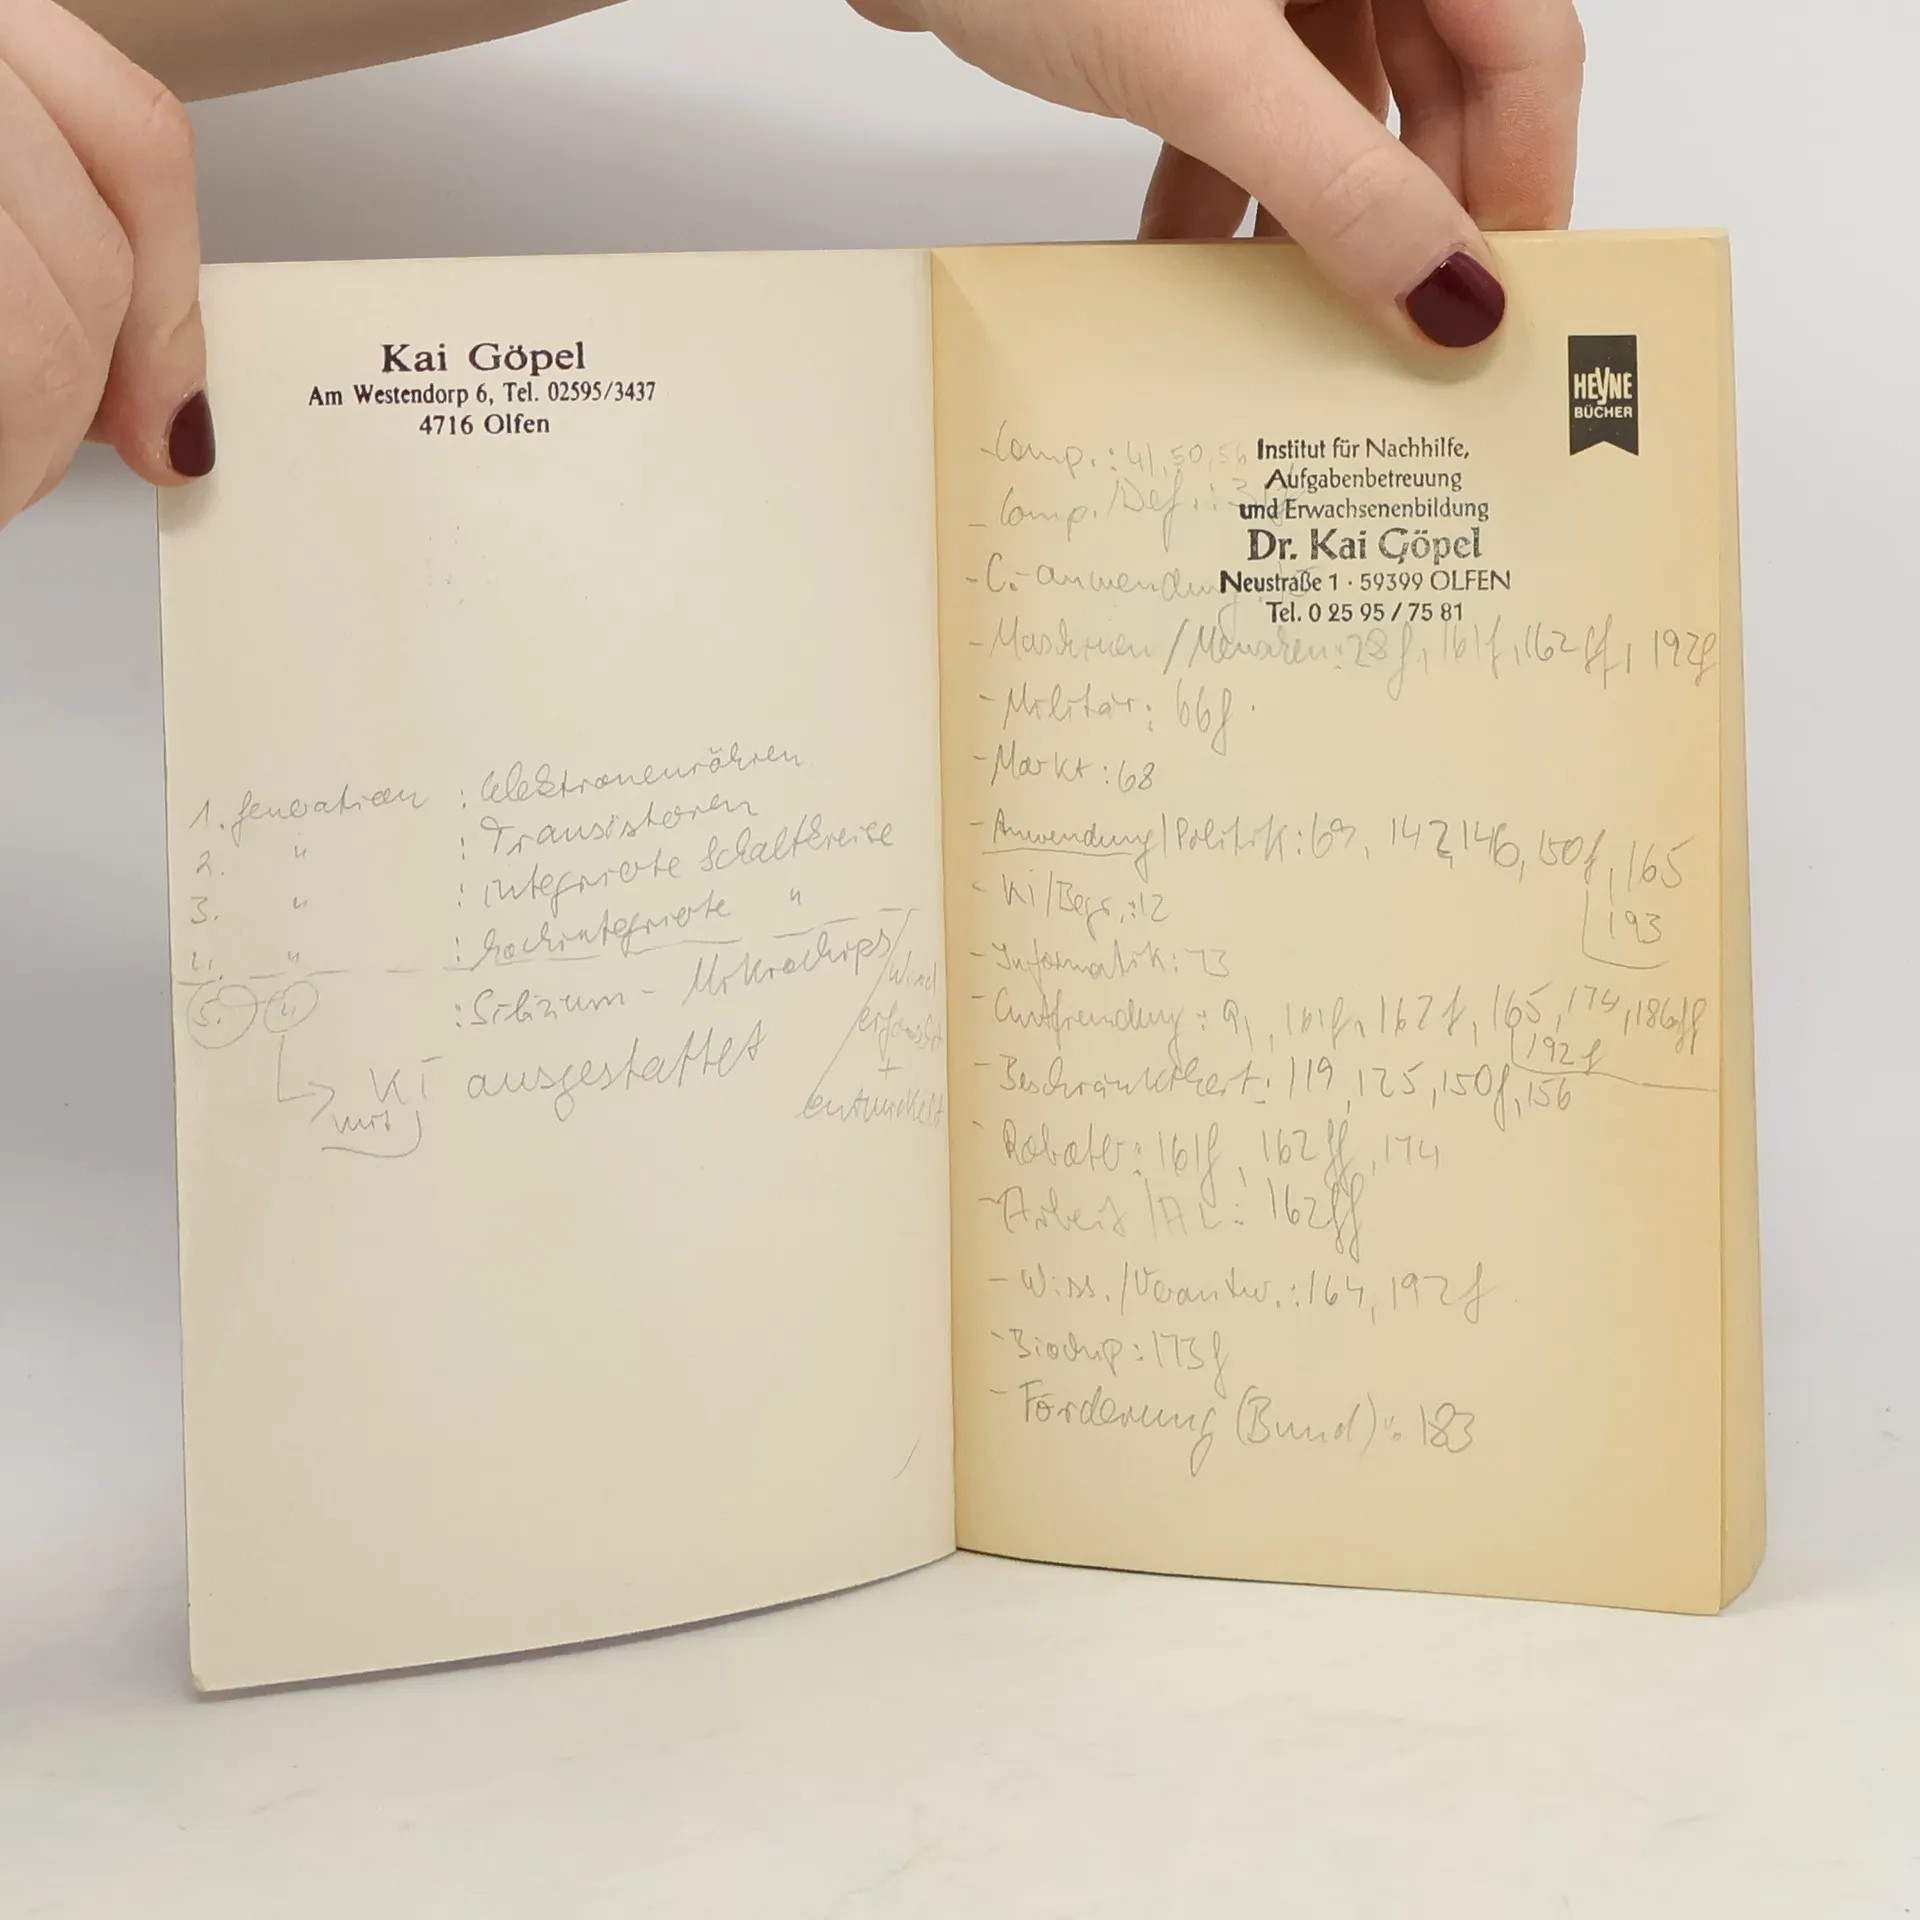 Kai Göpel
Am Westendorp 6, Tel. 02595/3437
4716 Olfen
1. Generation : Elektronenröhren
2. " : Transistoren
3. " : integrierte Schaltkreise
4. " : hochintegrierte "
5. " : Silizium - Mikrochips / wird erforscht + entwickelt
mit KI ausgestattet
HEYNE
BÜCHER
Institut für Nachhilfe,
Aufgabenbetreuung
und Erwachsenenbildung
Dr. Kai Göpel
Neustraße 1 · 59399 OLFEN
Tel. 0 25 95 / 75 81
- Comp.: 41, 50, 56
- Comp./Def.:
- C.-anwendung:
- Maschinen/Menschen: 28f, 161f, 162ff, 192f
- Militär: 66f.
- Markt: 68
- Anwendung/Politik: 69, 142, 146, 150f, 165
193
- KI/Begr.: 12
- Informatik: 73
- Entfremdung: 91, 161f, 162f, 165, 174, 186ff
192f
- Beschränktheit: 119, 125, 150f, 156
- Roboter: 161f, 162ff, 174
- Arbeit/AL: 162ff
- Wiss./Verantw.: 164, 192f
- Biochip: 173f
- Förderung (Bund): 183